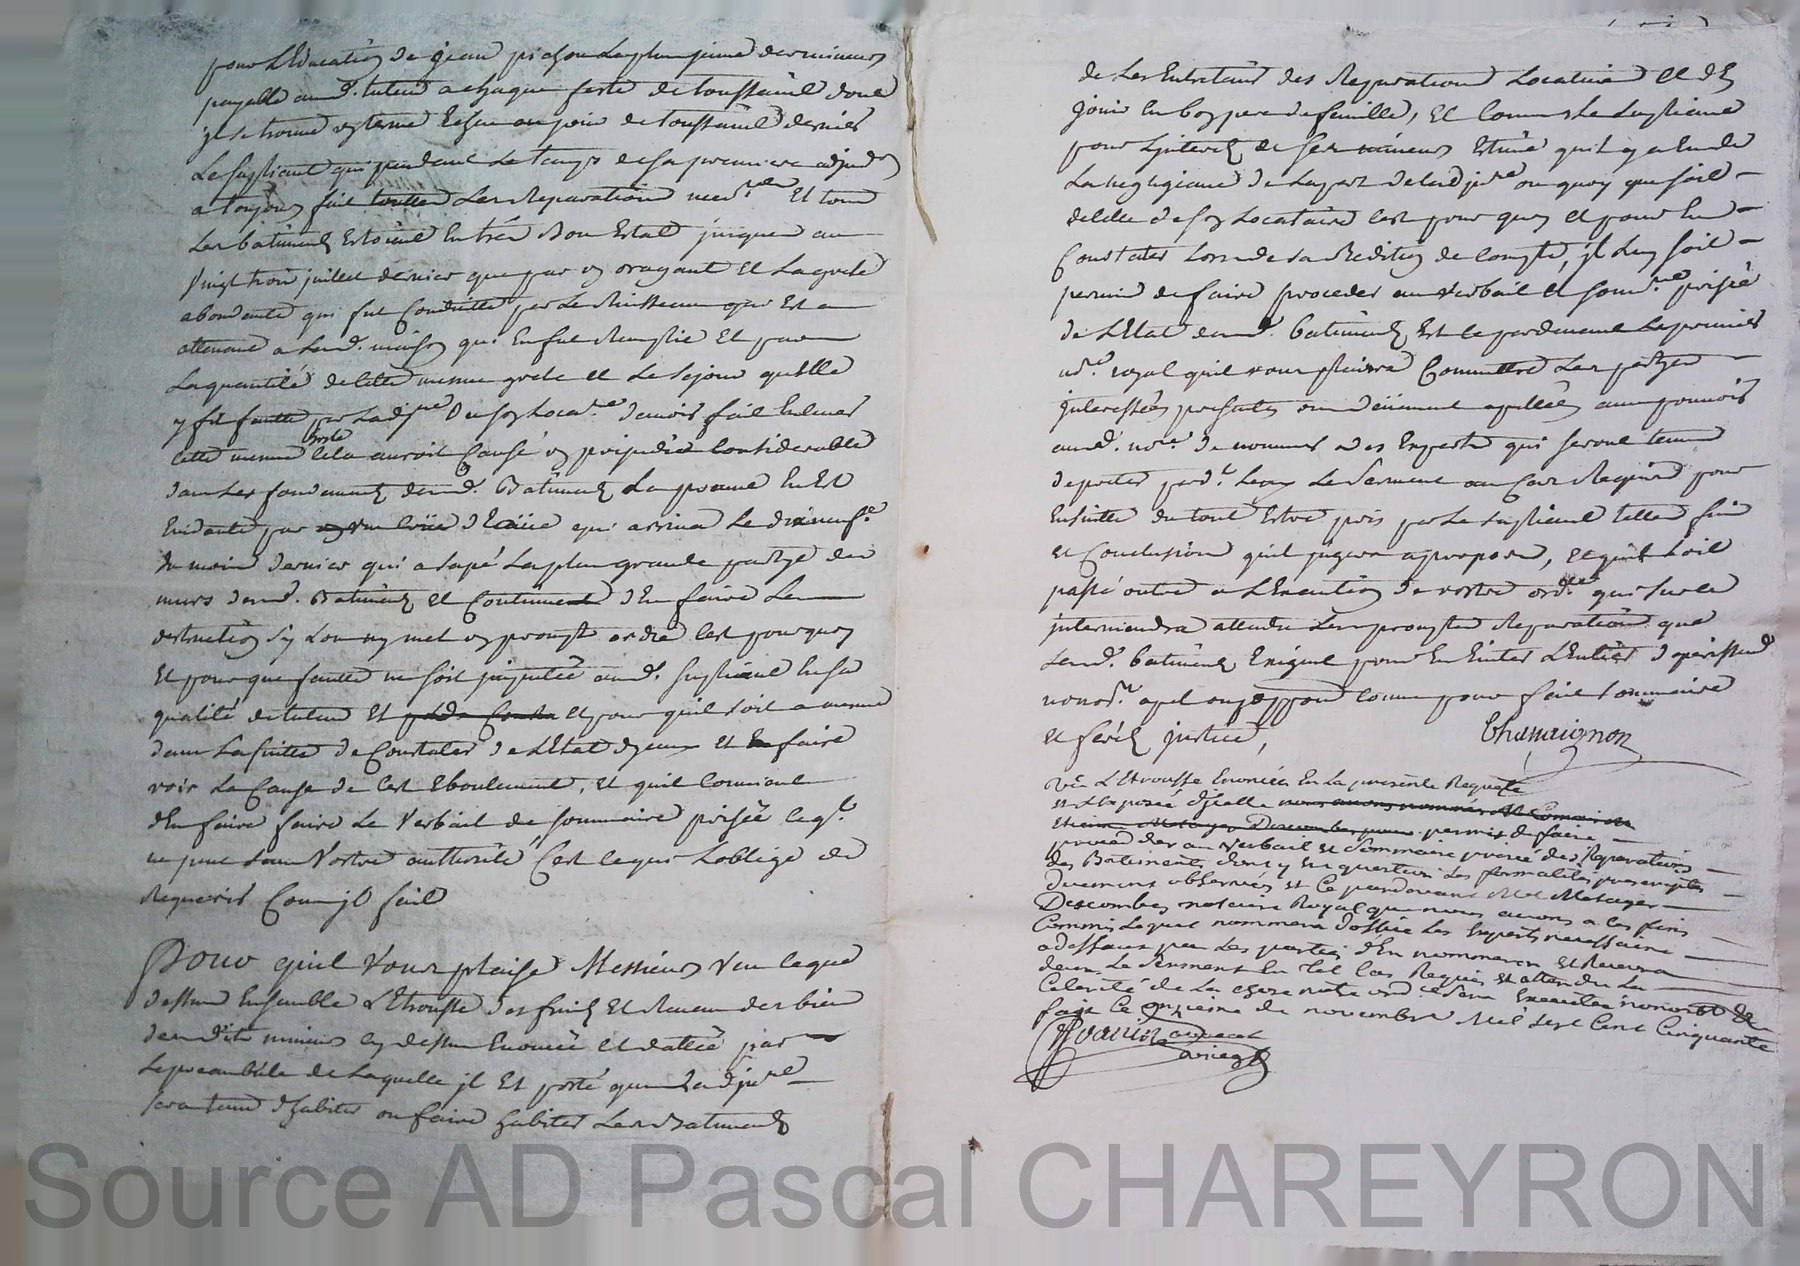 pour L'Education de jean pichon Le plus jeune des mineurs
payable aud. tuteur a chaque feste de toussaint dont
jl se trouve un terme Echeu au jour de toussaint dernier
Le supliant qui pendant Le temps de sa premiere adjud.on
a toujours fait touttes Les Reparations necess.res Et tous
Les batiments Estoient En très Bon Estat jusques au
vingt trois juillet dernier que par un oragant Et La grele
abondante qui fut Conduitte par Le Ruisseau qui Est
attenant a Lad. maison qui En fut Remplie Et par
La quantité de cette mesme grele et Le sejour qu'elle
y fit fautte par Ladj.re ou son Loca.re d'avoir fait Enlever
cette mesme grele cela auroit Causé un prejudice Considerable
dans Les fondements desd. Batiments La preuve En Est
Evidante par d'Eaüe qui arriva Le dixneuf.e
du mois dernier qui a sapé La plus grande partye des
murs desd. Batiments et Continuent d'En faire Leur
destruction s'y Lon ny met un prompt ordre C'est pourquoy
Et pour que fautte ne soit imputée aud. supliant En sa
qualité de tuteur Et pour qu'il soit a mesme
dans La suitte de Constater de L'Etat d'yceux et En faire
voir La Cause de C'est Eboulement, Et qu'il Convient
d'En faire faire Le Verbail de sommaire prisée Ce q.
ne peut sans Vostre authorité C'est Ce qui L'oblige de
Requerir Comme jl fait
Pour qu'il Vous plaise Messieurs Veu Ce que
dessus Ensemble L'Etrousse des fruits Et Revenus des biens
desdits mineurs Cy dessus Enoncée et dattée par
Le preambule de Laquelle jl Est porté que L'adju.re
sera tenu d'habiter ou faire habiter Les Batiments
de Les Entretenir des Reparations Locatives et d'En
jouir En bon pere de famille, Et Comme Le supliant
pour L'jnterest de ses mineurs Estime qu'il y a Eu de
La negligeance de La part de Ladj.re ou quoy que soit
de Celle de son Locataire C'est pour quoy et pour En
Constater Lors de sa Reddition de Compte, jl Luy soit
permis de faire proceder au verbail et som.re prisée
de L'Etat desd. batiments Est ce pardevant Le premier
no.re royal qu'il vous plairra Commettre Les partyes
jnteressées presentes ou deüement apellées aux pouvoir
aud. no.re de nommer Des Experts qui seront tenus
de preter pard. Luy Le serment au Cas Requis pour
Ensuitte du tout Estre pris par Le supliant telles fins
et Conclusions qu'il jugera a propos, et qu'il soit
passé outre a L'Execution de vostre ord.ce qui sur ce
jnterviendra attendu Les promptes Reparations que
Lesd. batiments Exigent pour En Eviter L'Entier deperissem.t
nonob.t apel ou opposon Comme pour fait sommaire
et ferés justice,
Chassaignon
Veu L'Etrousse Enoncée En La presente Requete
et L'Exposé d'jcelle nous avons nommés Me Comm
permis de faire
proceder au Verbail et Sommaire prisée des Reparations
des Batiments dont y En question Les formalités prescriptes
deuement observées et Ce pardevant Me Metayer
Descombes notaire Royal que nous avons a Ces fins
Commis Lequel nommera d'office Les Experts necessaires
a deffaux par Les parties d'En nommer et Recevra
deux Le Serment En tel Cas Requis Et attendu La
Celerité de La chose notre ord. sera Executée nonobst
fait Ce onzieme de novembre Mil Sept Cent Cinquante